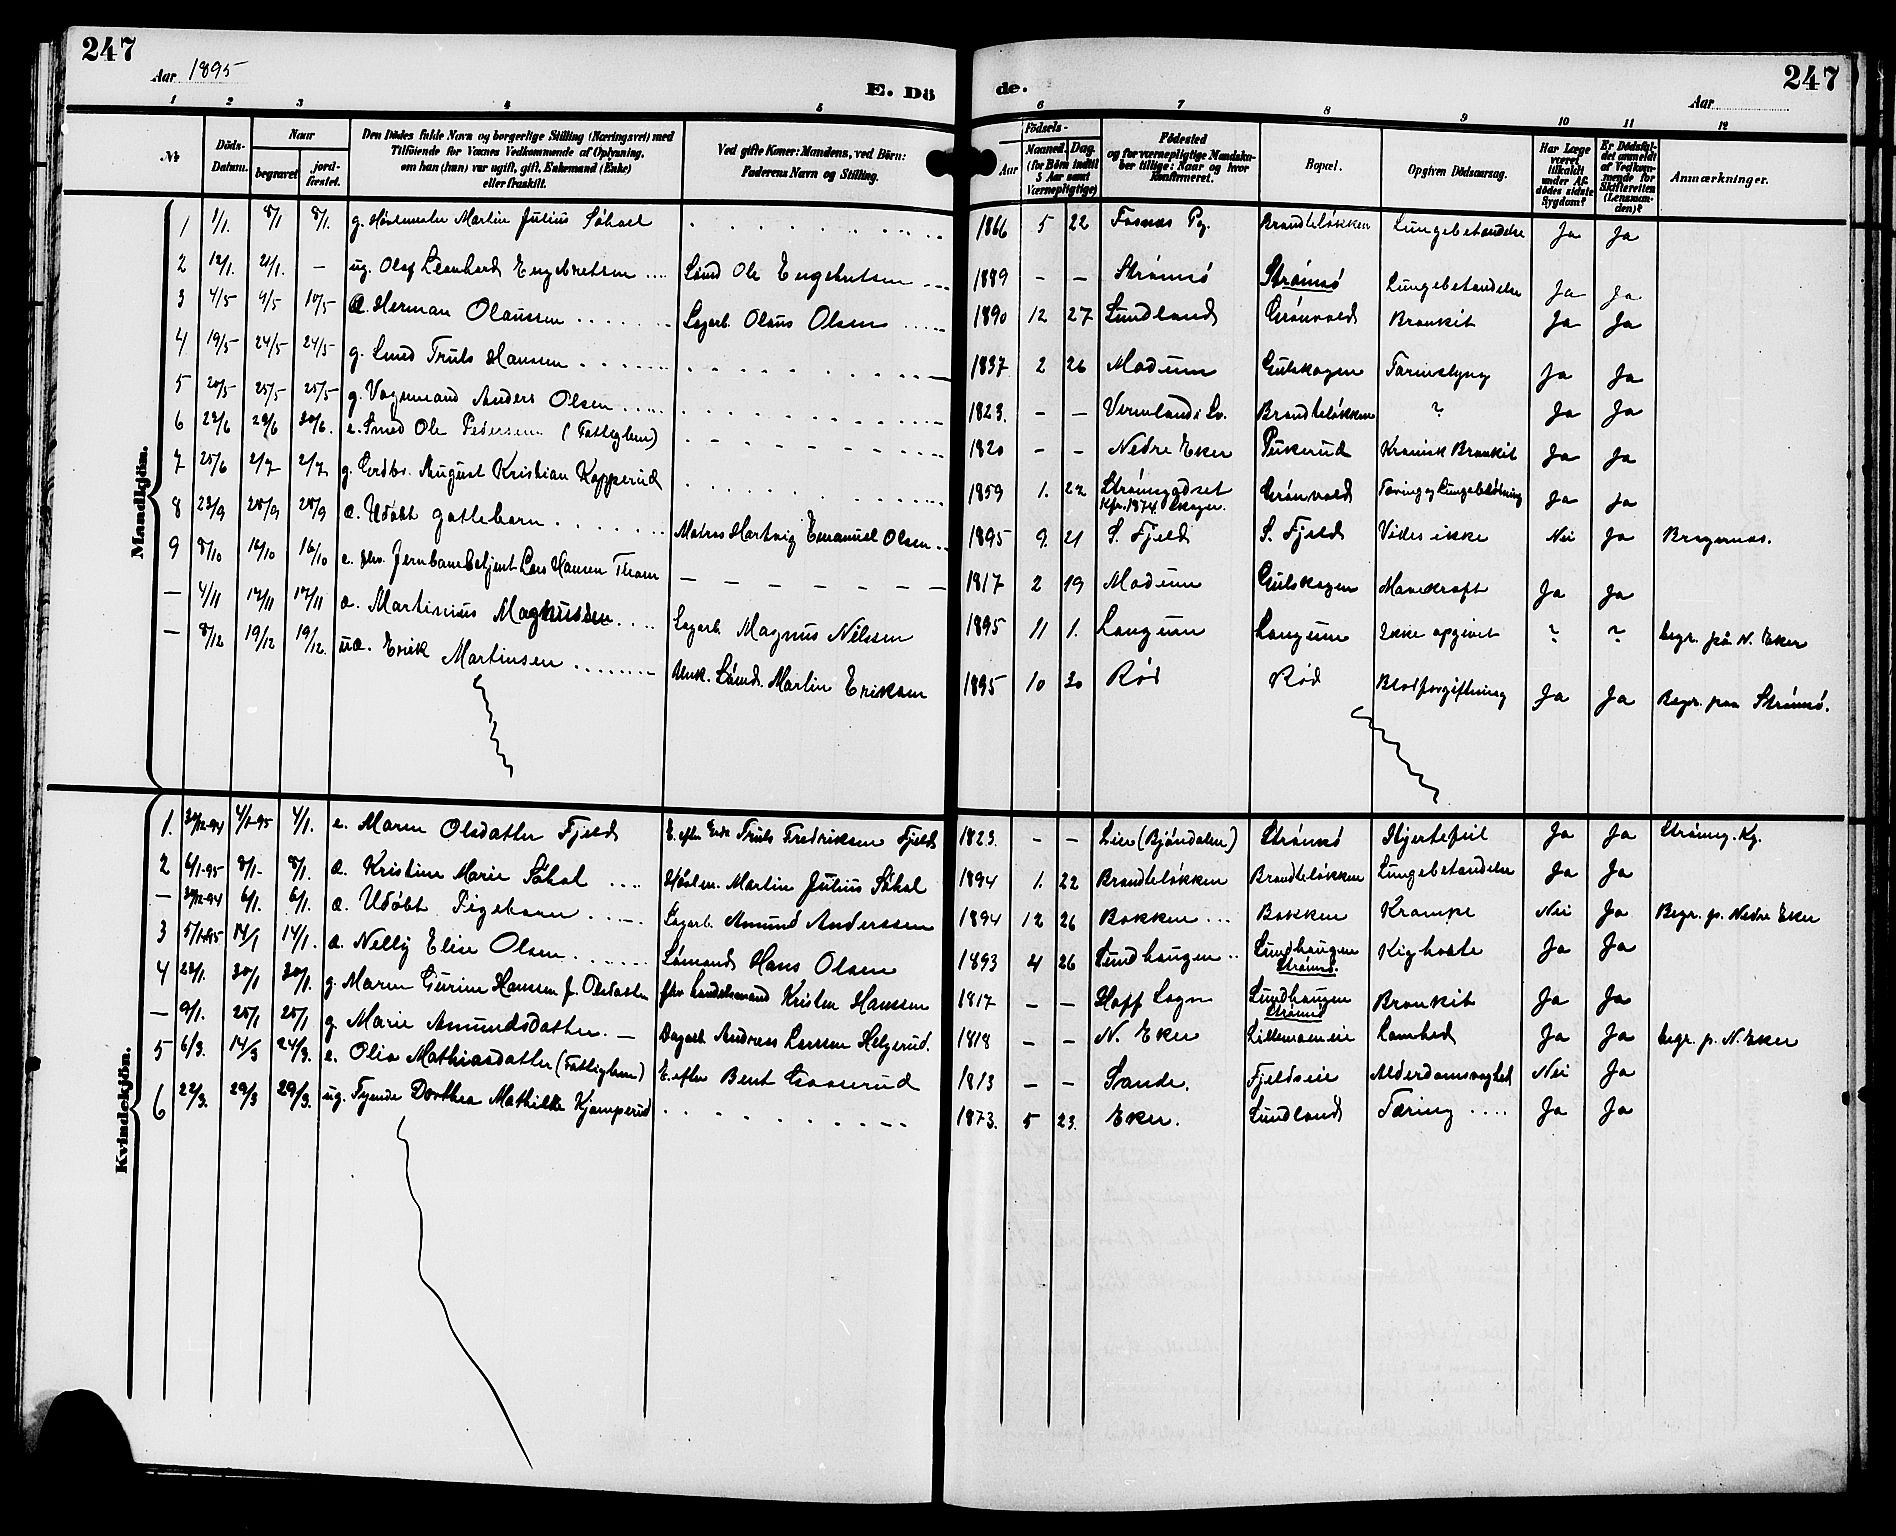 247
Aar 1895
E. Dö
de.
Aar
247
1 2 3 4 5 6 7 8 9 10 11 12
No
Döds-Datum.
Naar
begravet
jord-fæstet.
Den Dödes fulde Navn og borgerlige Stilling (Næringsvei) med
Tilföiende for Voxnes Vedkommende af Oplysning,
om han (hun) var ugift, gift, Enkemand (Enke)
eller fraskilt.
Ved gifte Koner: Mandens, ved Börn:
Faderens Navn og Stilling.
Födsels-
Aar
Maaned. Dag.
(for Börn indtil
5 Aar samt
Værnepligtige)
Födested
og for værnepligtige Mandska-
ber tillige: Naar og hvor
Konfirmeret.
Bopæl.
Opgiven Dödsaarsag.
Har Læge
været
tilkaldt
under Af-
dödes sidste
Sygdom?
Er Dödsfal-
det anmeldt
af Vedkom-
mende for
Skifteretten
(Lensman-
den)?
Anmærkninger.
Mandkjön.
1 1/1. 8/1 8/1. g. Martin Julius Söhol 1866 5 22 Fosnæs Pg. Brandteløkken Lungebetændelse Ja Ja
2 12/1. 21/1. — ug. Olaf Leonhard Engebretsen Smed Ole Engebretsen 1889 — — Strømsø Strømsø Lungebetændelse Ja Ja
3 4/5 9/5 10/5 Æ. Herman Olaussen Sagarb. Olaus Olsen 1890 12 27 Sundland Grønvold Bronkit Ja Ja
4 19/5 24/5 24/5 g. Smed Truls Hansen 1837 2 26 Modum Gulskogen Tarmslyng Ja Ja
5 20/5 25/5 25/5 g. Vognmand Anders Olsen 1823. — — Vermland i Sv. Brandteløkken ? Ja Ja
6 23/6 29/6 30/6. e. Smed Ole Pedersen (Fattiglem) 1820 — — Nedre Eker Pukerud Kronisk Bronkit Ja Ja
7 25/6 2/7 2/7 g. Grdbr. August Kristian Kopperud 1859 1. 22 Strømsgodset Kfr. 1874 Skoger. Grønvold Tæring og Lungeblødning Ja Ja
8 23/9 28/9 28/9 Æ. Udøbt Gottebarn Matros Hartvig Emanuel Olsen 1895 9. 21 S. Fjeld S. Fjeld Vides ikke Nei Ja Bragernæs.
9 8/10 16/10 16/10 e. Jernbanebetjent Lars Hansen Thom 1817 2 19 Modum Gulskogen Mavekræft Ja Ja
— 4/11 17/11 17/11 Æ. Martinius Magnussen Sagarb. Magnus Nilsen 1895 11 1. Langum Langum Ikke opgivet ? ? begr. på N. Eker
— 8/12 19/12 19/12. uæ. Erik Martinsen Unk. Sømd. Martin Eriksen 1895 10 20 Rød Rød Blodforgiftning Ja Ja Begr. paa Strømsø.
Kvindekjön.
1. 30/12-94 4/1-95 4/1. e. Maren Olsdatter Fjeld E. efter Truls Fredriksen Fjeld 1823. — — Lier (Bjøndalen) Strømsø Hjertefeil Ja Ja Strømsg. Kg.
2 6/1-95 8/1- 8/1. Æ. Kristine Marie Söhol Martin Julius Söhol 1894 1. 22 Brandteløkken Brandteløkken Lungebetændelse Ja Ja
— 30/12-94 6/1. 6/1. Æ. Udøbt Pigebarn Sagarb. Amund Andersen 1894 12 26 Bakken Bakken Krampe Nei Ja Begr. p. Nedre Eker
3 5/1-95 14/1 14/1. Æ. Nelly Elise Olsen Sømand Hans Olsen 1893 4 26 Sundhaugen Sundhaugen Strømsø. Kighoste Ja Ja
4 23/1. 30/1 30/1. g. Maren Gurine Hansen f. Olsdatter fhv. Landhandlmand Kristen Hanssen 1817 — — Hoff Sogn Sundhaugen Strømsø Bronkit Ja Ja
— 9/1. 25/1 25/1. g. Marie Amundsdatter. Dagarb Andreas Larsen Helgerud. 1818 — — N. Eker Lillemoeneie Lamhed Ja Ja begr. p. N. Eker
5 6/3. 14/3 24/3. e. Olia Mathiasdatter (Fattiglem) E. efter Bent Gaaserud 1813 — — Sande. Fjeldseie Alderdomsvaghed Nei Ja
6 22/3. 29/3 29/3. ug. Tyende Dorthea Mathilde Kjemperud 1873. 5 23. Eker. Sundland Tæring Ja Ja